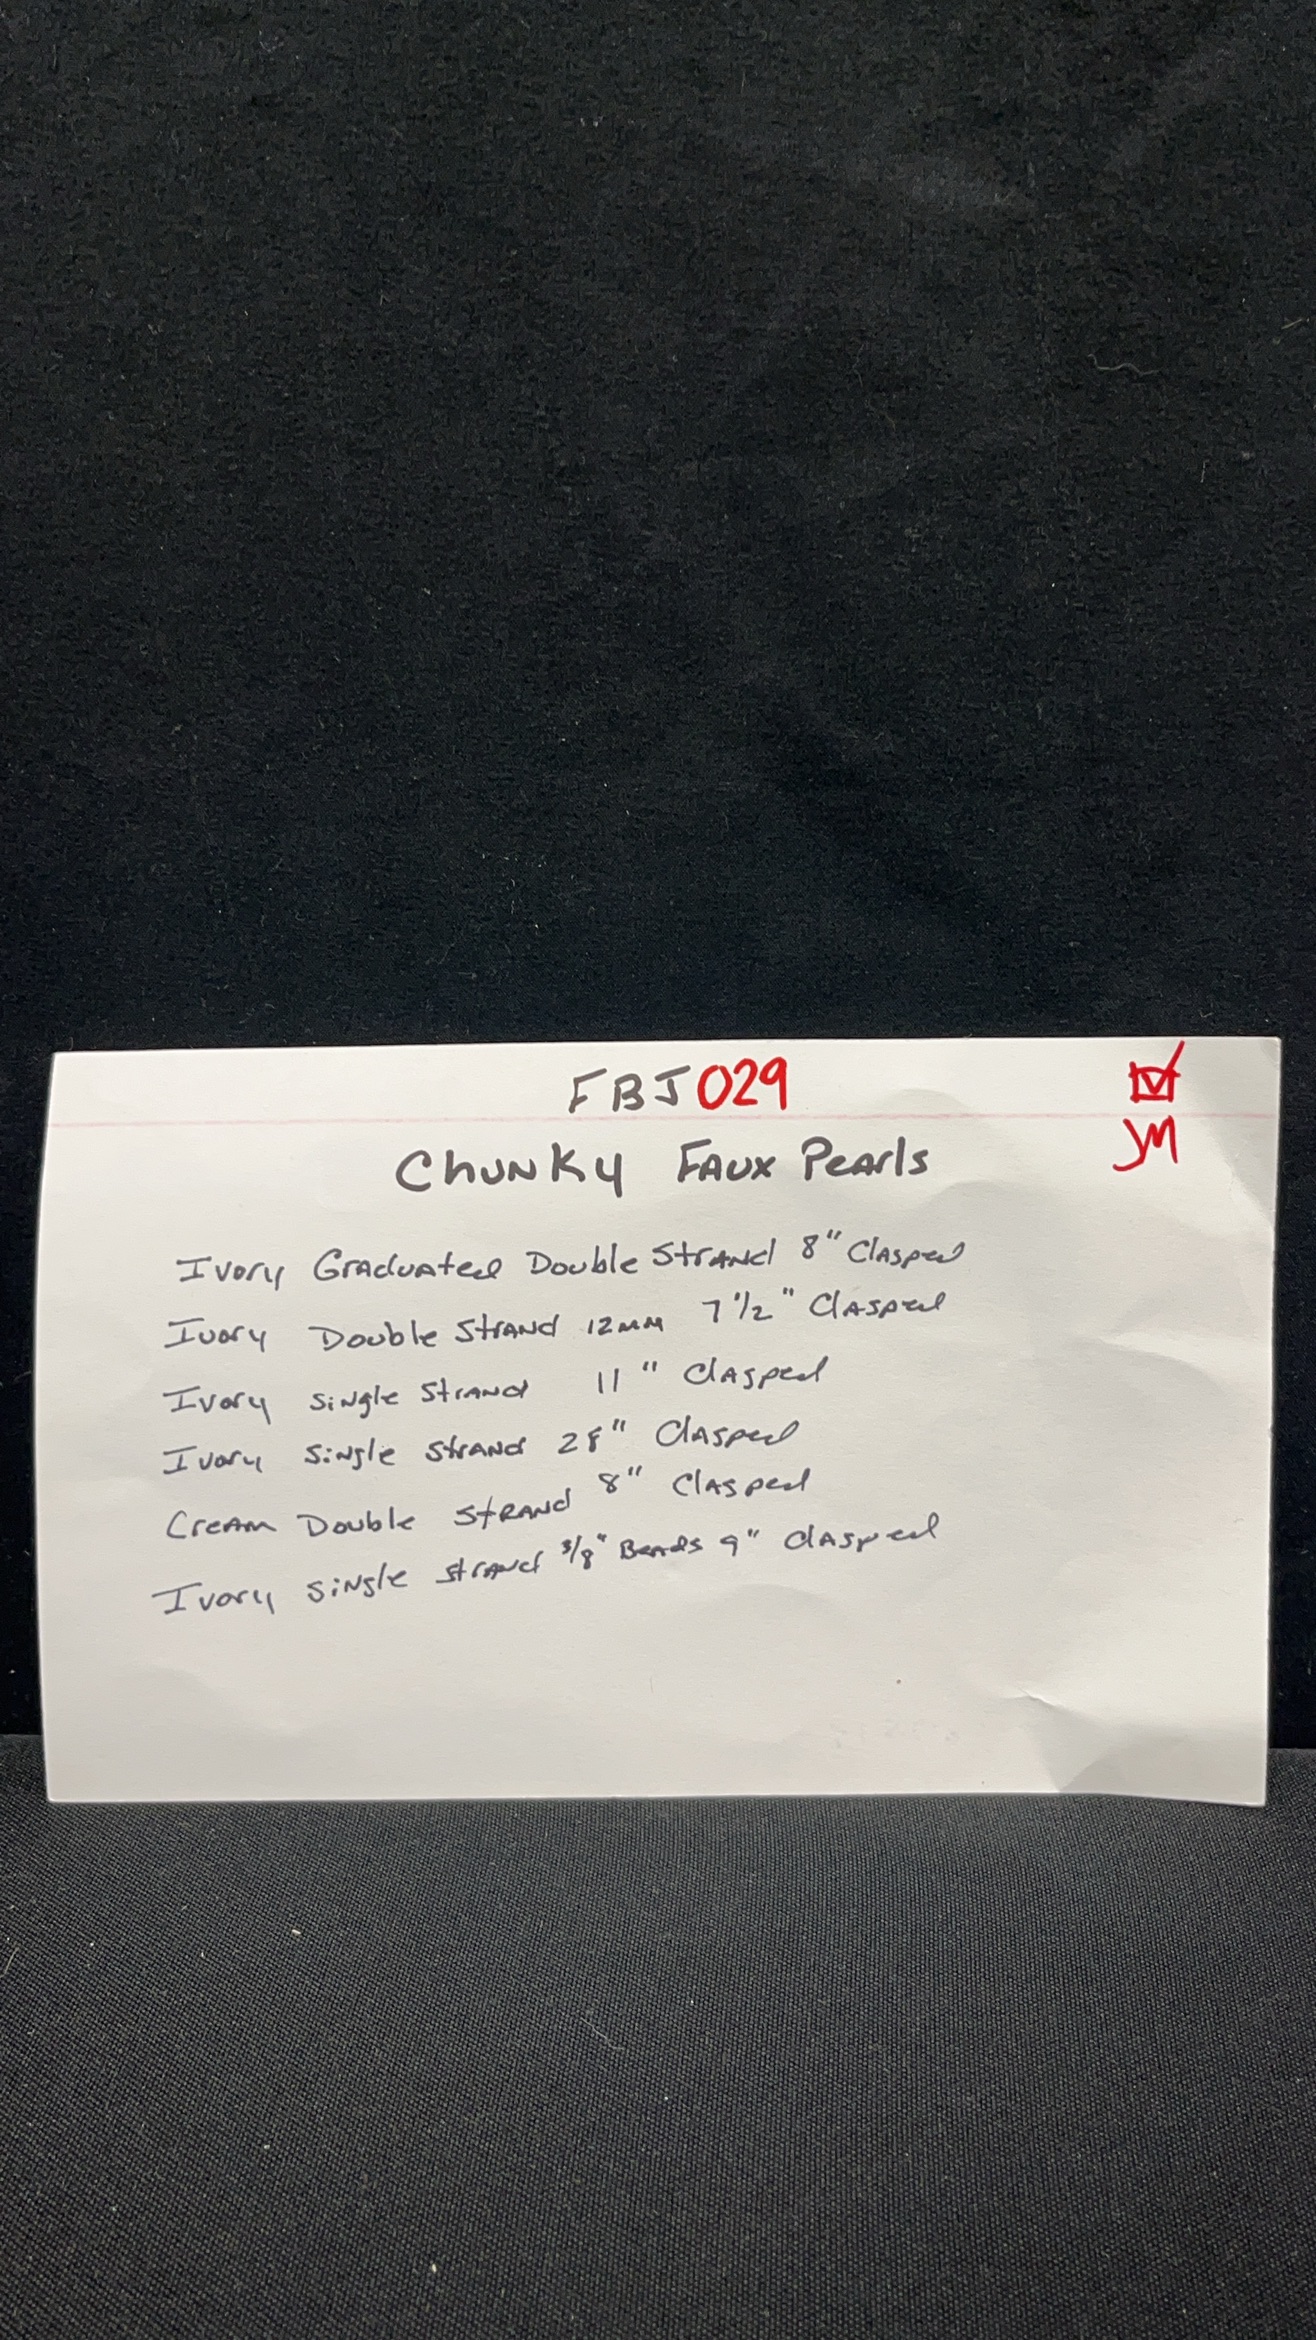 FBJ029
JM
Chunky Faux Pearls
Ivory Graduated Double Strand 8" Clasped
Ivory Double Strand 12mm 7 1/2" Clasped
Ivory Single Strand 11" Clasped
Ivory Single Strand 28" Clasped
Cream Double Strand 8" Clasped
Ivory Single Strand 3/8" Beads 9" Clasped